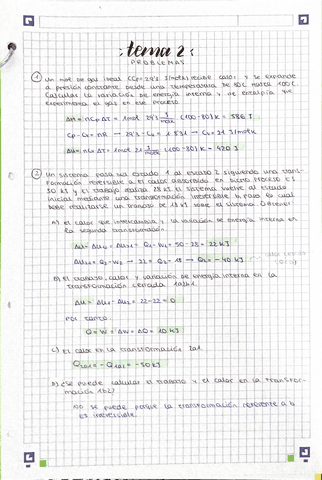 : tema 2 :
PROBLEMAS
① Un mol de gas ideal (Cp=29'3 J/molK) recibe calor y se expande
a presión constante desde una temperatura de 80ºC hasta 100ºC.
Calcular la variación de energía interna y de entalpía que
experimenta el gas en ese proceso
ΔH = nCp ΔT = 1mol 29'3 (100-80) K = 586 J
Cp - Cv = nR → 29'3 - Cv = 1 8'31 → Cv = 21 J/molK
ΔU = nCv ΔT = 1mol 21 (100-80) K = 420 J
② Un sistema pasa del estado 1 al estado 2 siguiendo una trans-
formación reversible a el calor absorbido en dicho proceso es
50 kJ y el trabajo realiza 28 kJ. El sistema vuelve al estado
inicial mediante una transformación irreversible b, para lo cual
debe realizarse un trabajo de 18 kJ sobre el sistema. Obtener:
A) El calor que intercambia y la variación de energía interna en
la segunda transformación.
= 50 - 28 = 22 kJ
= -40 kJ
B) El trabajo, calor y variación de energía interna en la
transformación cerrada 1a2b1.
ΔU = ΔU₁ - ΔU₂ = 22 - 22 = 0
Por tanto
Q = W = ΔW = ΔQ = 10 kJ
C) El calor en la transformación 2a1.
= -50 kJ
D) ¿Se puede calcular el trabajo y el calor en la transfor-
mación 1b2?
No se puede porque la transformación referente a b
es irreversible.